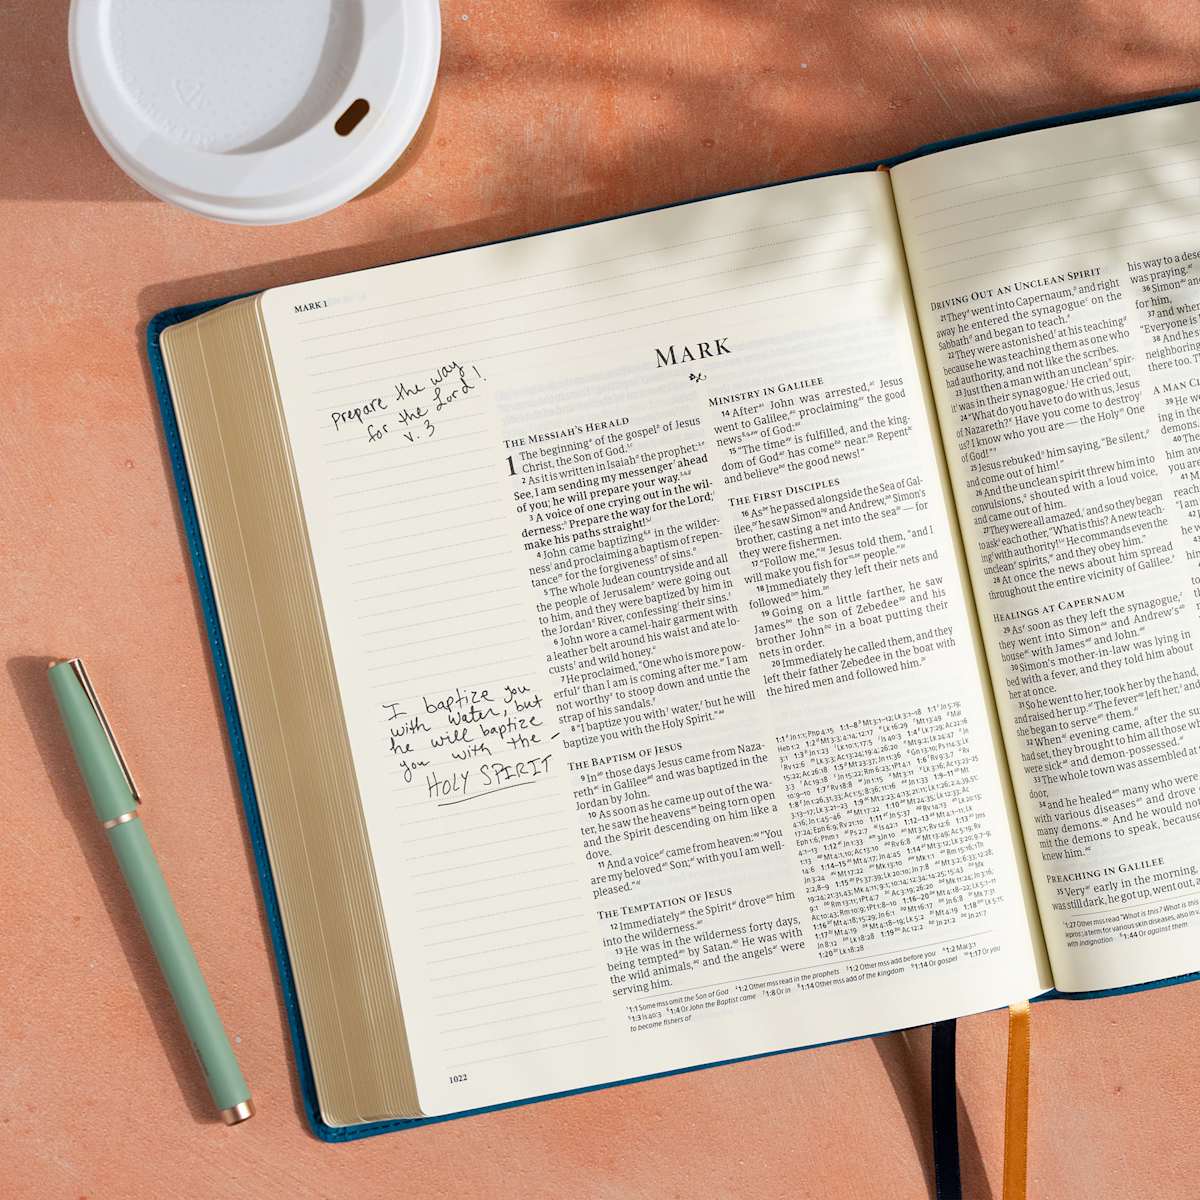 MARK 1
Prepare the way
for the Lord!
v. 3
I baptize you
with water, but
he will baptize
you with the –
HOLY SPIRIT
MARK
THE MESSIAH'S HERALD
1 The beginning of the gospel of Jesus
Christ, the Son of God.
2 As it is written in Isaiah the prophet:
See, I am sending my messenger ahead
of you; he will prepare your way.
3 A voice of one crying out in the wil-
derness: Prepare the way for the Lord;
make his paths straight!
4 John came baptizing in the wilder-
ness and proclaiming a baptism of repen-
tance for the forgiveness of sins.
5 The whole Judean countryside and all
the people of Jerusalem were going out
to him, and they were baptized by him in
the Jordan River, confessing their sins.
6 John wore a camel-hair garment with
a leather belt around his waist and ate lo-
custs and wild honey.
7 He proclaimed, "One who is more pow-
erful than I am is coming after me. I am
not worthy to stoop down and untie the
strap of his sandals.
8 "I baptize you with water, but he will
baptize you with the Holy Spirit."
THE BAPTISM OF JESUS
9 In those days Jesus came from Naza-
reth in Galilee and was baptized in the
Jordan by John.
10 As soon as he came up out of the wa-
ter, he saw the heavens being torn open
and the Spirit descending on him like a
dove.
11 And a voice came from heaven: "You
are my beloved Son; with you I am well-
pleased."
THE TEMPTATION OF JESUS
12 Immediately the Spirit drove him
into the wilderness.
13 He was in the wilderness forty days,
being tempted by Satan. He was with
the wild animals, and the angels were
serving him.
MINISTRY IN GALILEE
14 After John was arrested, Jesus
went to Galilee, proclaiming the good
news of God:
15 "The time is fulfilled, and the king-
dom of God has come near. Repent
and believe the good news!"
THE FIRST DISCIPLES
16 As he passed alongside the Sea of Gal-
ilee, he saw Simon and Andrew, Simon's
brother, casting a net into the sea — for
they were fishermen.
17 "Follow me," Jesus told them, "and I
will make you fish for people."
18 Immediately they left their nets and
followed him.
19 Going on a little farther, he saw
James the son of Zebedee and his
brother John in a boat putting their
nets in order.
20 Immediately he called them, and they
left their father Zebedee in the boat with
the hired men and followed him.
1:1 Some mss omit the Son of God 1:2 Other mss read in the prophets 1:2 Other mss add before you 1:2 Mal 3:1
1:3 Is 40:3 1:4 Or John the Baptist came 1:8 Or in 1:14 Other mss add of the kingdom 1:14 Or gospel 1:17 Or you
to become fishers of
1022
DRIVING OUT AN UNCLEAN SPIRIT
21 They went into Capernaum, and right
away he entered the synagogue on the
Sabbath and began to teach.
22 They were astonished at his teaching
because he was teaching them as one who
had authority, and not like the scribes.
23 Just then a man with an unclean spir-
it was in their synagogue. He cried out,
24 "What do you have to do with us, Jesus
of Nazareth? Have you come to destroy
us? I know who you are — the Holy One
of God!"
25 Jesus rebuked him saying, "Be silent,
and come out of him!"
26 And the unclean spirit threw him into
convulsions, shouted with a loud voice,
and came out of him.
27 They were all amazed, and so they began
to ask each other, "What is this? A new teach-
ing with authority! He commands even the
unclean spirits, and they obey him."
28 At once the news about him spread
throughout the entire vicinity of Galilee.
HEALINGS AT CAPERNAUM
29 As soon as they left the synagogue,
they went into Simon and Andrew's
house with James and John.
30 Simon's mother-in-law was lying in
bed with a fever, and they told him about
her at once.
31 So he went to her, took her by the hand,
and raised her up. The fever left her, and
she began to serve them.
32 When evening came, after the su
had set, they brought to him all those w
were sick and demon-possessed.
33 The whole town was assembled a
door,
34 and he healed many who wer
with various diseases and drove
many demons. And he would no
mit the demons to speak, because
knew him.
PREACHING IN GALILEE
35 Very early in the morning,
was still dark, he got up, went out, a
1:27 Other mss read "What is this? What is this
lepros; a term for various skin diseases, also in
with indignation 1:44 Or against them
his way to a dese
was praying.
36 Simon and
for him,
37 and when
"Everyone is
38 And he s
neighboring
there too. T
A MAN C
39 He w
ing in th
demons.
40 The
him an
you ar
41 M
reach
"I am
42 I